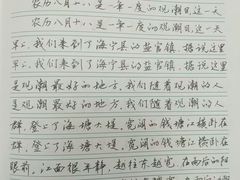 农历八月十八是一年一度的观潮日,这一天
农历八月十八是一年一度的观潮日,这一天
早上,我们来到了海宁县的盐官镇,据说这里
早上,我们来到了海宁县的盐官镇,据说这里
是观潮最好的地方,我们随着观潮的人
是观潮最好的地方,我们随着观潮的人
群,登上了海塘大堤,宽阔的钱塘江横卧在
群,登上了海塘大堤,宽阔的钱塘江横卧在
眼前,江面很平静,越往东越宽,在雨后的阳